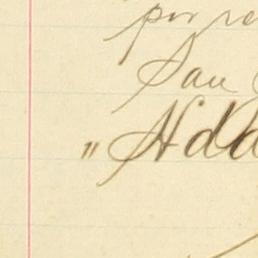 por re
San
" Hda